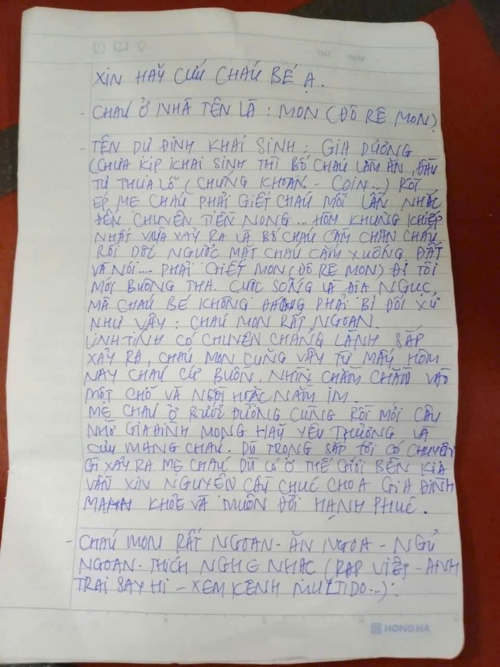 XIN HÃY CỨU CHÁU BÉ Ạ.
- CHÁU Ở NHÀ TÊN LÀ : MON (ĐÔ RÊ MON)
- TÊN DỰ ĐỊNH KHAI SINH : GIA DƯƠNG
(CHƯA KỊP KHAI SINH THÌ BỐ CHÁU LÀM ĂN, ĐẦU
TƯ THUA LỖ (CHỨNG KHOÁN - COIN...) RỒI
ÉP MẸ CHÁU PHẢI GIẾT CHÁU MỖI LẦN NHẮC
ĐẾN CHUYỆN TIỀN NONG... HÔM KHỦNG KHIẾP
NHẤT VỪA XẢY RA LÀ BỐ CHÁU CẦM CHÂN CHÁU
RỒI DỐC NGƯỢC MẶT CHÁU CẮM XUỐNG ĐẤT
VÀ NÓI... PHẢI GIẾT MON (ĐÔ RÊ MON) ĐI TÔI
MỚI BUÔNG THA. CUỘC SỐNG LÀ ĐỊA NGỤC,
MÀ CHÁU BÉ KHÔNG ĐÁNG PHẢI BỊ ĐỐI XỬ
NHƯ VẬY : CHÁU MON RẤT NGOAN.
LINH TÍNH CÓ CHUYỆN CHẲNG LÀNH SẮP
XẢY RA, CHÁU MON CŨNG VẬY TỪ MẤY HÔM
NAY CHÁU CỨ BUỒN, NHÌN CHẰM CHẰM VÀO
MỘT CHỖ VÀ NGỒI HOẶC NẰM IM.
MẸ CHÁU Ở ĐƯỜNG CÙNG RỒI MỚI CẦU
NHỜ GIA ĐÌNH MONG HÃY YÊU THƯƠNG VÀ
CƯU MANG CHÁU. DÙ TRONG SẮP TỚI CÓ CHUYỆN
GÌ XẢY RA MẸ CHÁU DÙ CÓ Ở THẾ GIỚI BÊN KIA
VẪN XIN NGUYỆN CẦU CHÚC CHO CẢ GIA ĐÌNH
MẠNH KHỎE VÀ MUÔN ĐỜI HẠNH PHÚC.
- CHÁU MON RẤT NGOAN - ĂN NGOAN - NGỦ
NGOAN. THÍCH NGHE NHẠC (RAP VIỆT - ANH
TRAI SAY HI - XEM KÊNH MULTIDO...).
HONG HA